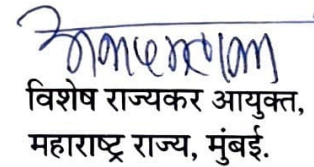 विशेष राज्यकर आयुक्त,
महाराष्ट्र राज्य, मुंबई.